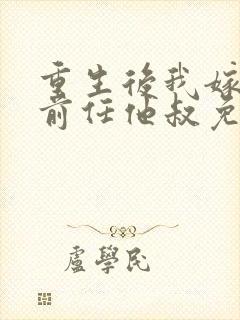 重生後我嫁
前任他叔免
盧學民